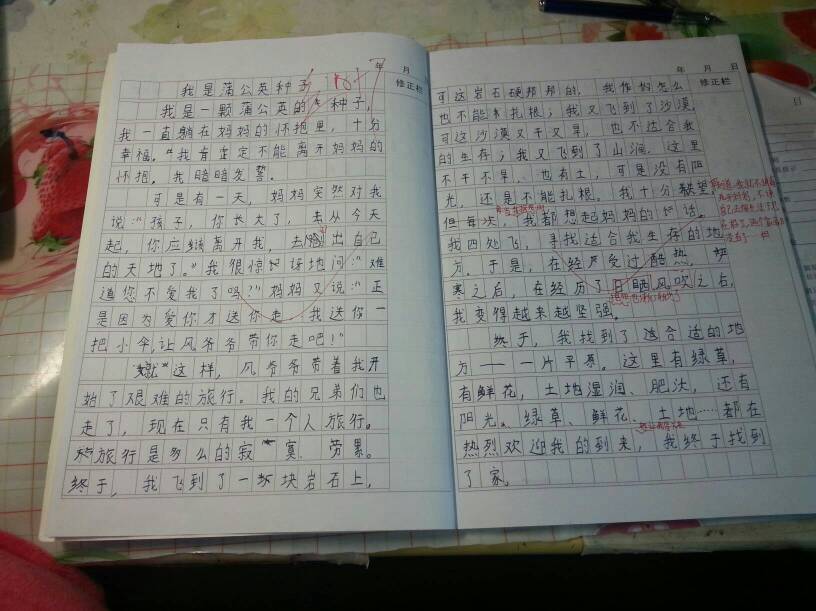 年 月
修正栏
我是蒲公英种子
我是一颗蒲公英的种子，
我一直躺在妈妈的怀抱里，十分
幸福。“我肯定不能离开妈妈的
怀抱。我暗暗发誓。
可是有一天，妈妈突然对我
说：“孩子，你长大了，去从今天
起，你应该离开我，去闯出自己
的天地了。”我很惊讶地问：“难
道您不爱我了吗？”妈妈又说：“正
是因为爱你才送你走，我送你一
把小伞，让风爷爷带你走吧！”
就这样，风爷爷带着我开
始了艰难的旅行。我的兄弟们也
走了，现在只有我一个人旅行。
旅行是多么的寂寞、劳累。
终于，我飞到了一块岩石上，
年 月 日
修正栏
可这岩石硬邦邦的，我作怎么
也不能扎根；我又飞到了沙漠，
可这沙漠又干又旱，也不适合我
的生存；我又飞到了山涧，这里
不干不旱、也有土，可是没有阳
光，还是不能扎根。我十分
但每次，我都想起妈妈的话。
我四处飞，寻找适合我生存的地
方。于是，在经受过酷热，严
寒之后，在经历了日晒风吹之后，
我变得越来越坚强。
终于，我找到了适合适的地
方——一片平原。这里有绿草，
有鲜花，土地湿润、肥沃，还有
阳光。绿草、鲜花、土地……都在
热烈欢迎我的到来，我终于找到
了家。
日